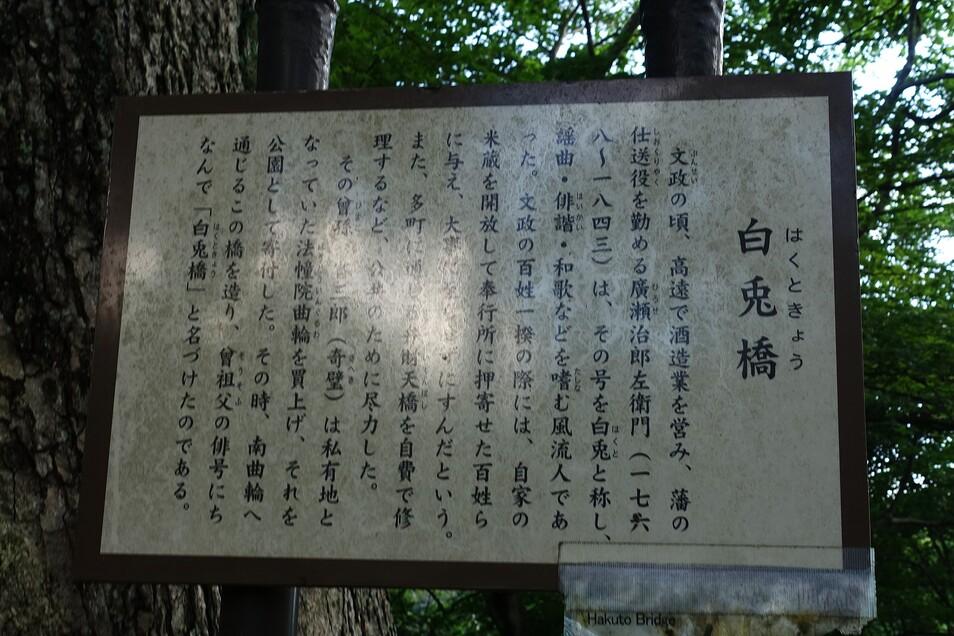 白兎橋
はくときょう
文政の頃、高遠で酒造業を営み、藩の
ぶんせい
仕送役を勤める廣瀬治郎左衛門（一七六
しおくりやく ひろせ
八〜一八四三）は、その号を白兎と称し、
はくと
謡曲・俳諧・和歌などを嗜む風流人であ
はいかい たしな
った。文政の百姓一揆の際には、自家の
米蔵を開放して奉行所に押寄せた百姓ら
に与え、大事に にすんだという。
また、多町に通じる弁財天橋を自費で修
理するなど、公 ために尽力した。
その曾孫 三郎（奇壁）は私有地と
なっていた法幢院曲輪を買上げ、それを
公園として寄付した。その時、南曲輪へ
通じるこの橋を造り、曾祖父の俳号にち
そうそふ
なんで「白兎橋」と名づけたのである。
はくときょう
Hakuto Bridge